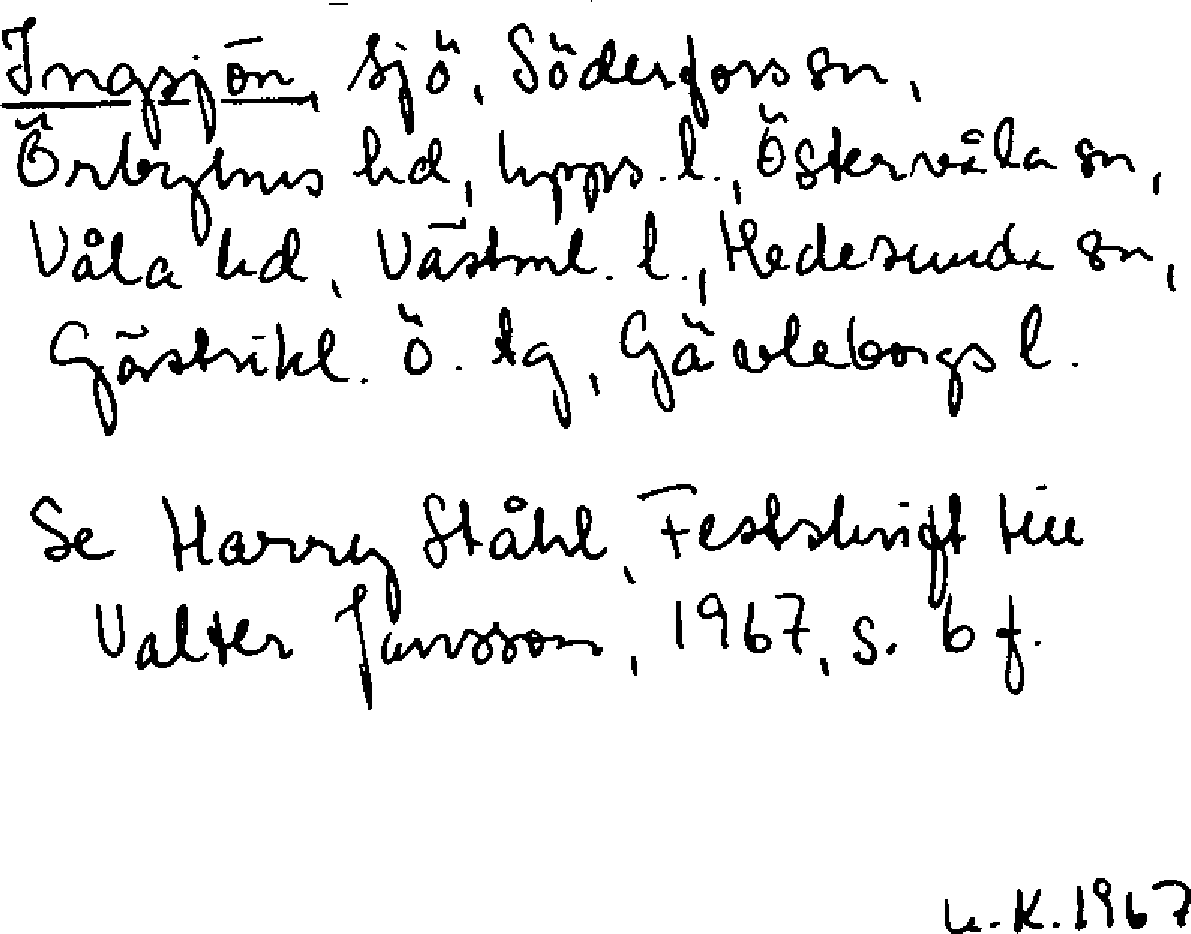 Ingsjön, sjö, Söderfors sn,
Örbyhus hd, Upps. l., Östervåla sn,
Våla hd, Västml. l., Hedesunda sn,
Gästrikl. ö. tg, Gävleborgs l.
Se Harry Ståhl, Festskrift till
Valter Jansson, 1967, s. 6 f.
u.K.1967